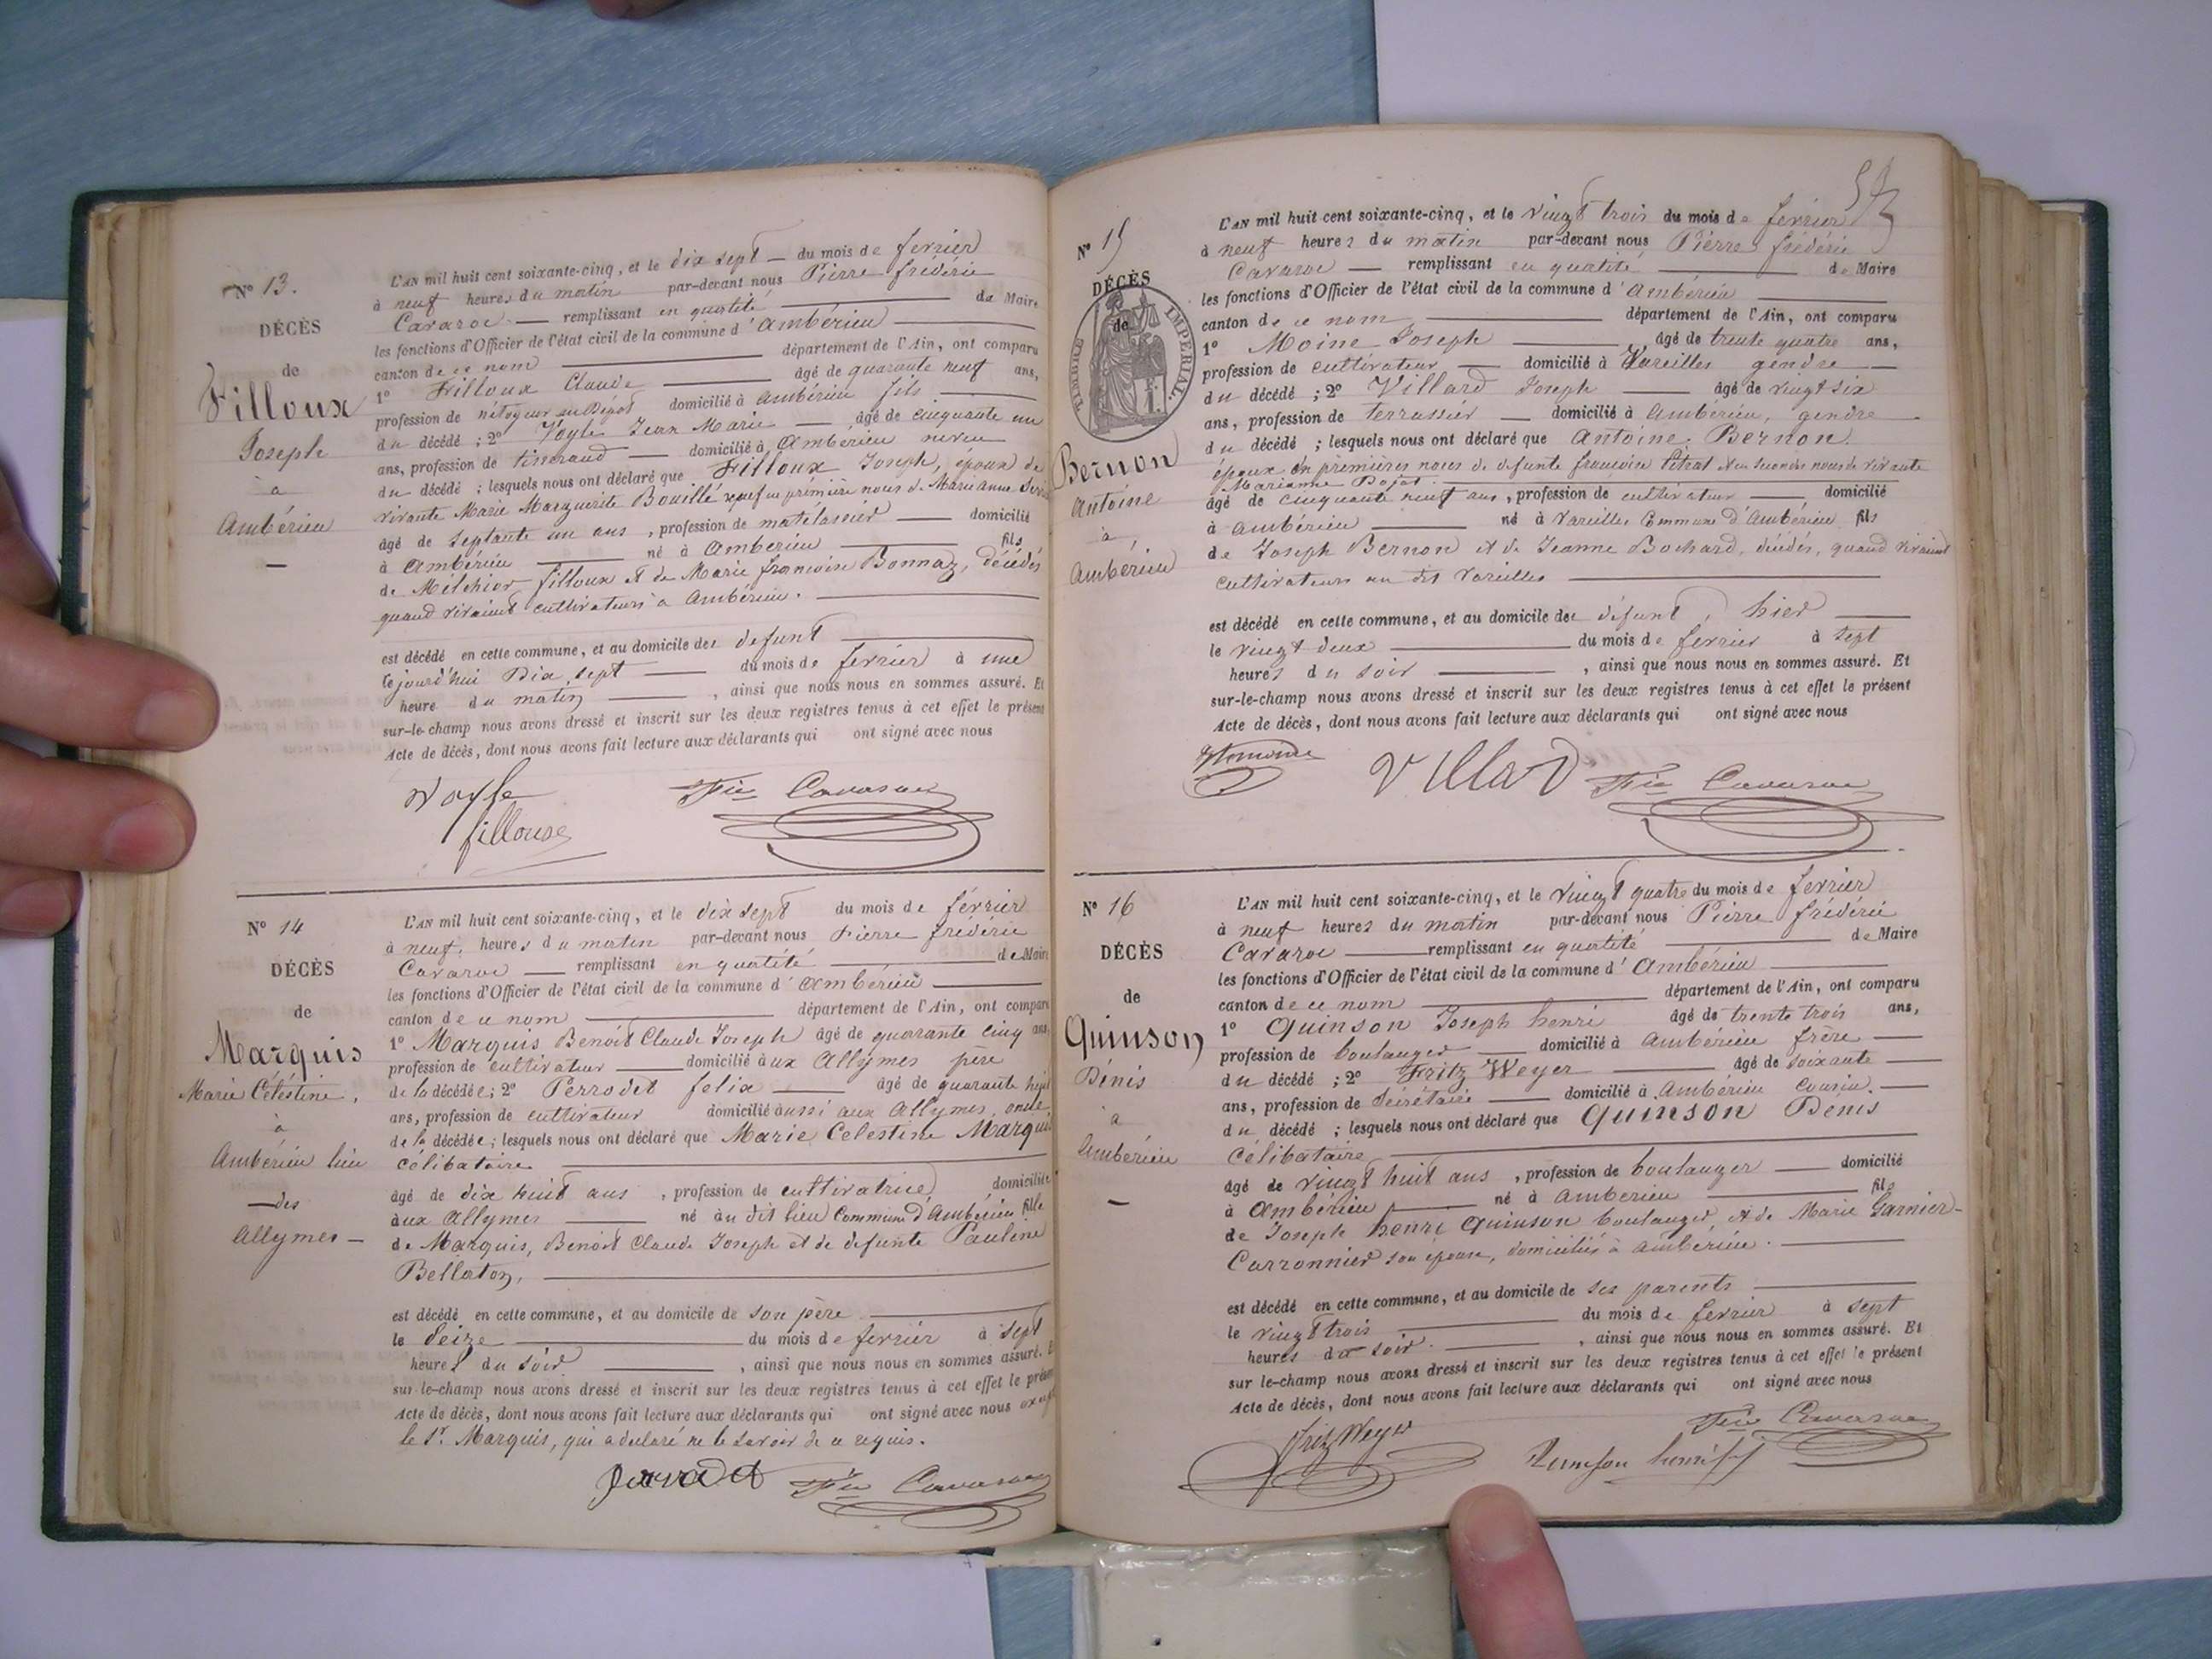 N° 13.
DÉCÈS
de
Filloux
Joseph
à
Ambérieu
L'AN mil huit cent soixante-cinq, et le dix sept du mois de fevrier
à neuf heures du matin par-devant nous Pierre frédéric
Cavaroc remplissant en qualité de Maire
les fonctions d'Officier de l'état civil de la commune d'Ambérieu
canton de ce nom département de l'Ain, ont comparu
1° Filloux Claude âgé de quarante neuf ans,
profession de au Dépôt domicilié à Ambérieu fils
du décédé ; 2° Vogle Jean Marie âgé de cinquante un
ans, profession de tisserand domicilié à Ambérieu neveu
du décédé ; lesquels nous ont déclaré que Filloux Joseph, époux de
vivante Marie Marguerite Bouillé veuf en première noces de Marie Anne
âgé de septante un ans, profession de matelassier domicilié
à Ambérieu né à Ambérieu fils
de Melchior filloux et de Marie françoise Bonnaz, décédés
quand vivaient cultivateurs à Ambérieu.
est décédé en cette commune, et au domicile de defunt
Cejourd'hui Dix sept du mois de fevrier à une
heure du matin, ainsi que nous nous en sommes assuré. Et
sur-le-champ nous avons dressé et inscrit sur les deux registres tenus à cet effet le présent
Acte de décès, dont nous avons fait lecture aux déclarants qui ont signé avec nous
Vogle
filloux
Fic Cavaroc
N° 14
DÉCÈS
de
Marquis
Marie Célestine,
à
Ambérieu lieu
des
Allymes
L'AN mil huit cent soixante-cinq, et le dix sept du mois de février
à neuf heures du matin par-devant nous Pierre frédéric
Cavaroc remplissant en qualité de Maire
les fonctions d'Officier de l'état civil de la commune d'Ambérieu
canton de ce nom département de l'Ain, ont comparu
1° Marquis Benoit Claude Joseph âgé de quarante cinq ans,
profession de cultivateur domicilié aux Allymes père
de la décédée; 2° Perrodet felix âgé de quarante huit
ans, profession de cultivateur domicilié aussi aux Allymes, oncle
de la décédée; lesquels nous ont déclaré que Marie Celestine Marquis
célibataire
âgé de dix huit ans, profession de cultivatrice domiciliée
aux Allymes né au dit lieu Commune d'Ambérieu fille
de Marquis, Benoit Claude Joseph et de defunte Pauline
Bellaton,
est décédé en cette commune, et au domicile de son père
le Seize du mois de fevrier à sept
heures du soir, ainsi que nous nous en sommes assuré. Et
sur-le-champ nous avons dressé et inscrit sur les deux registres tenus à cet effet le présent
Acte de décès, dont nous avons fait lecture aux déclarants qui ont signé avec nous excepté
le Sr. Marquis, qui a déclaré ne le savoir de ce requis.
Fic Cavaroc
N° 15
DÉCÈS
de
TIMBRE IMPÉRIAL
Bernon
Antoine
à
Ambérieu
L'AN mil huit cent soixante-cinq, et le vingt trois du mois de fevrier
à neuf heures du matin par-devant nous Pierre frédéric
Cavaroc remplissant en qualité de Maire
les fonctions d'Officier de l'état civil de la commune d'Ambérieu
canton de ce nom département de l'Ain, ont comparu
1° Moine Joseph âgé de trente quatre ans,
profession de cultivateur domicilié à Vareilles gendre
du décédé ; 2° Villard Joseph âgé de vingt six
ans, profession de terrassier domicilié à Ambérieu, gendre
du décédé ; lesquels nous ont déclaré que Antoine Bernon
époux en premières noces de defunte françoise Pitrat et en secondes noces de vivante
Marianne Pojot.
âgé de cinquante neuf ans, profession de cultivateur domicilié
à Ambérieu né à Vareilles Commune d'Ambérieu fils
de Joseph Bernon et de Jeanne Bochard, décédés, quand vivaient
cultivateurs au dit Vareilles
est décédé en cette commune, et au domicile de defunt, hier
le vingt deux du mois de fevrier à sept
heures du soir, ainsi que nous nous en sommes assuré. Et
sur-le-champ nous avons dressé et inscrit sur les deux registres tenus à cet effet le présent
Acte de décès, dont nous avons fait lecture aux déclarants qui ont signé avec nous
VillarD
Fic Cavaroc
N° 16
DÉCÈS
de
Quinson
Dénis
à
Ambérieu
L'AN mil huit cent soixante-cinq, et le vingt quatre du mois de fevrier
à neuf heures du matin par-devant nous Pierre frédéric
Cavaroc remplissant en qualité de Maire
les fonctions d'Officier de l'état civil de la commune d'Ambérieu
canton de ce nom département de l'Ain, ont comparu
1° Quinson Joseph henri âgé de trente trois ans,
profession de boulanger domicilié à Ambérieu frère
du décédé ; 2° Fritz Weyer âgé de soixante
ans, profession de Sécrétaire domicilié à Ambérieu cousin.
du décédé ; lesquels nous ont déclaré que Quinson Dénis
Célibataire
âgé de vingt huit ans, profession de boulanger domicilié
à Ambérieu né à Ambérieu fils
de Joseph henri Quinson boulanger, et de Marie Garnier-
Carronnier son épouse, domiciliés à Ambérieu.
est décédé en cette commune, et au domicile de ses parents
le vingt trois du mois de fevrier à sept
heures du soir., ainsi que nous nous en sommes assuré. Et
sur le-champ nous avons dressé et inscrit sur les deux registres tenus à cet effet le présent
Acte de décès, dont nous avons fait lecture aux déclarants qui ont signé avec nous
fritz Weyer
Quinson henri
Fic Cavaroc